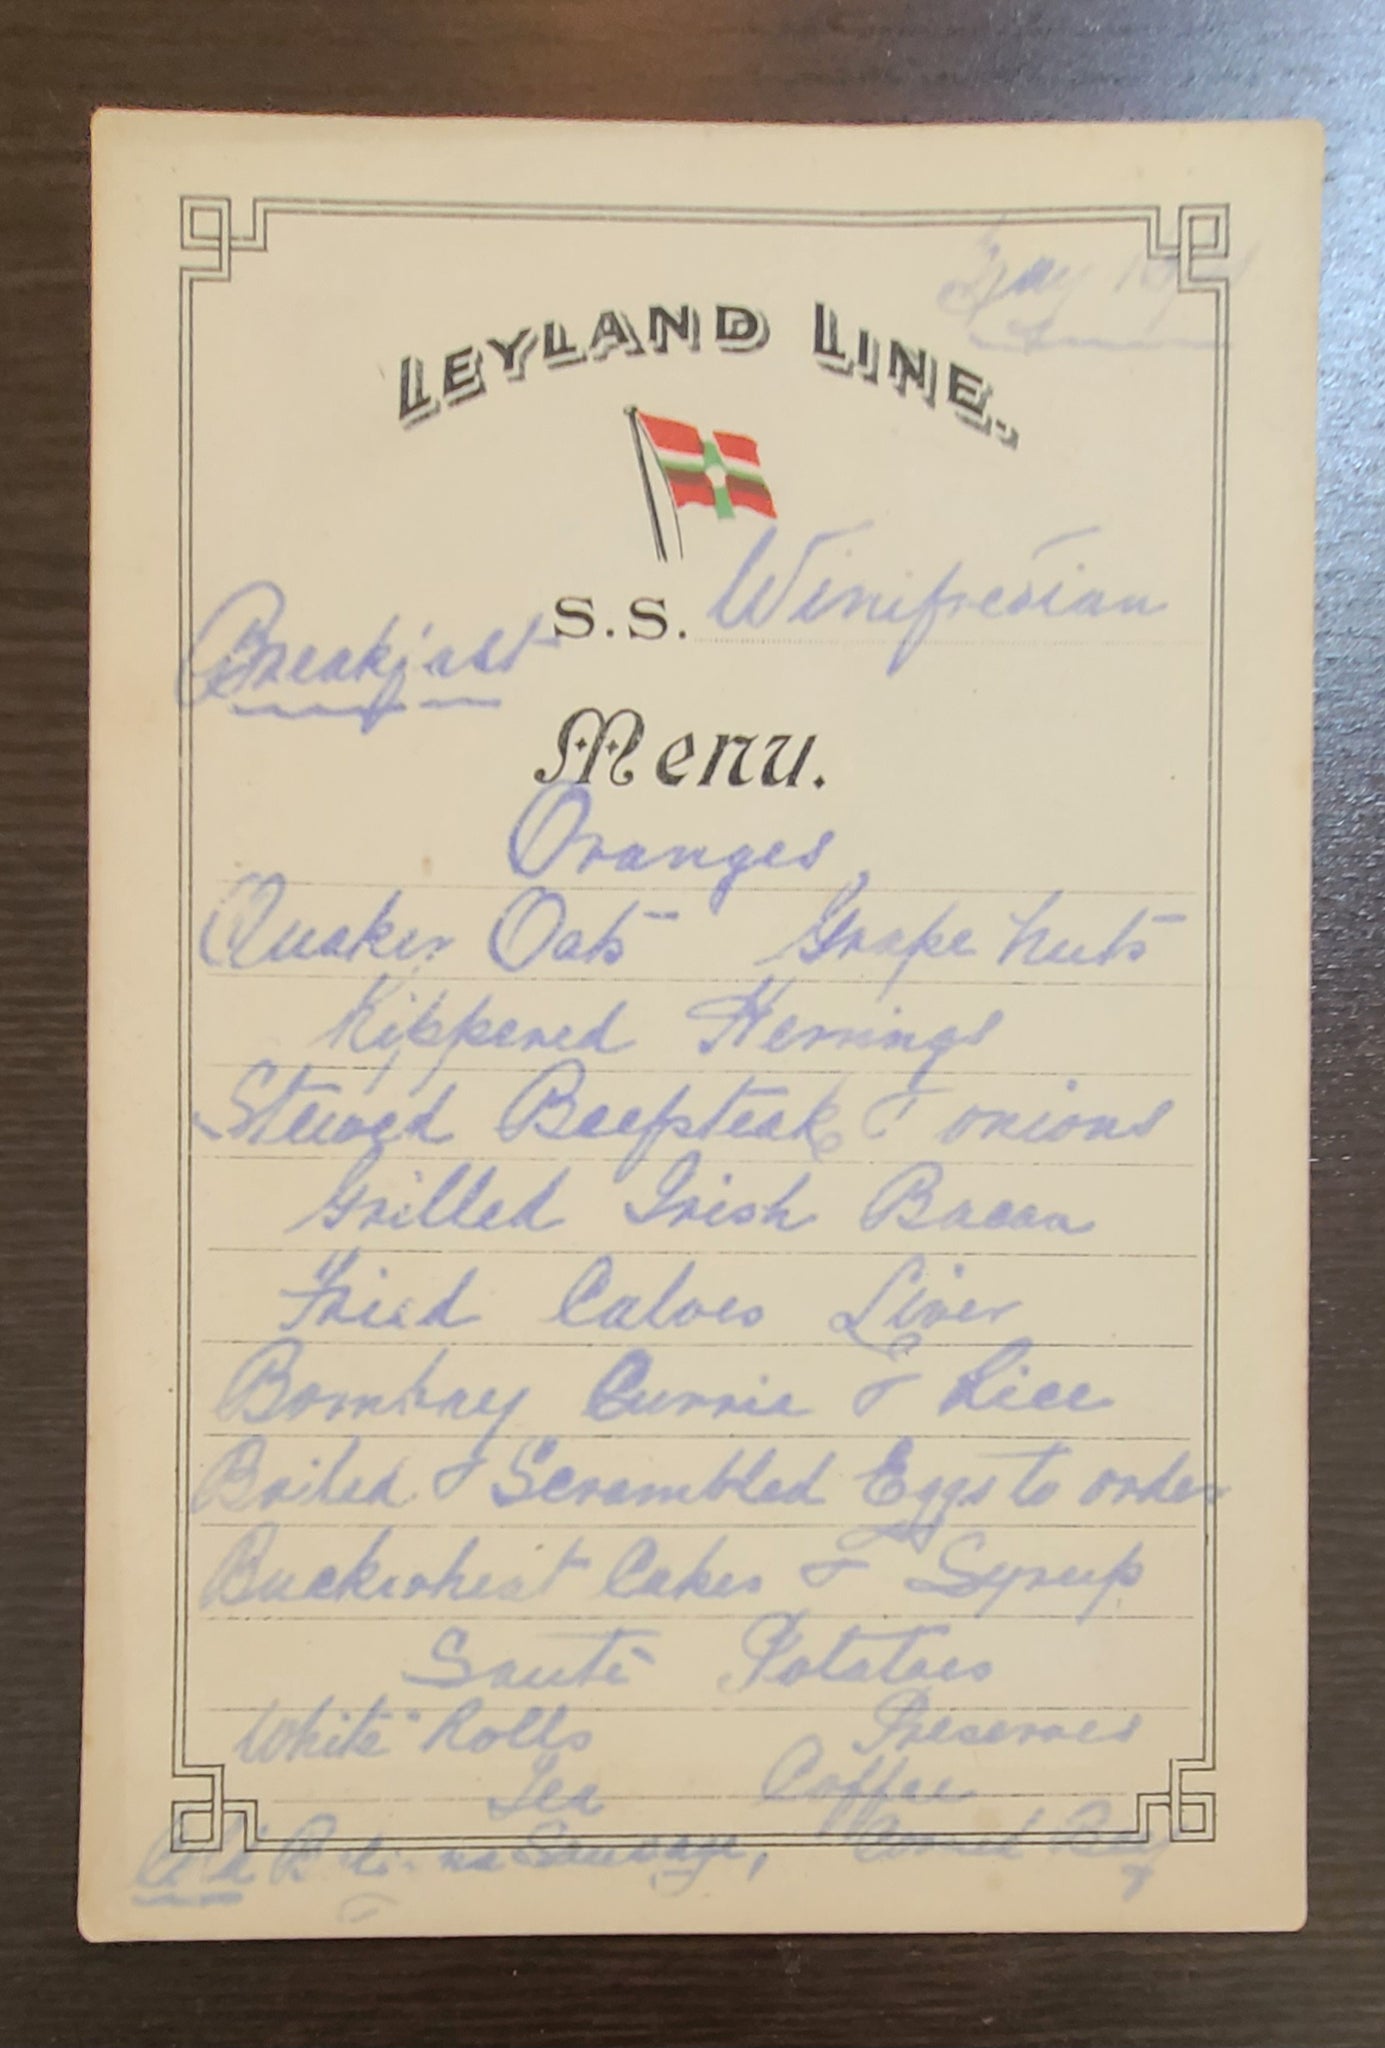 LEYLAND LINE.
S.S. Winifredian
Breakfast
Menu.
Oranges
Quaker Oats Grape Nuts
Kippered Herrings
Stewed Beefsteak & onions
Grilled Irish Bacon
Fried Calves Liver
Bombay Currie & Rice
Boiled & Scrambled Eggs to order
Buckwheat Cakes & Syrup
Sauté Potatoes
White Rolls Preserves
Tea Coffee
Cold Sausage, Corned